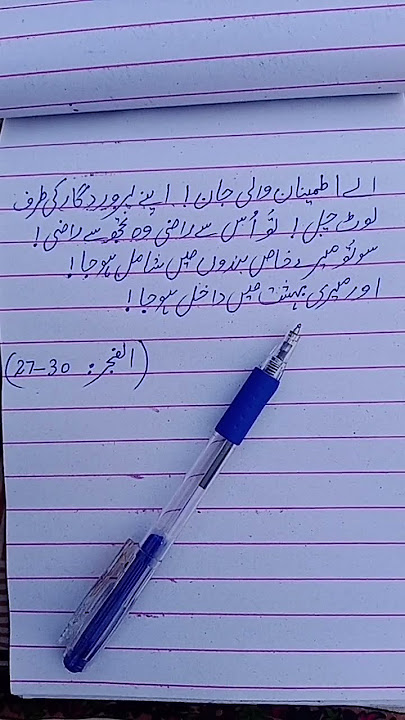 اے اطمینان والی جان! اپنے پروردگار کی طرف
لوٹ چل! تُو اُس سے راضی وہ تجھ سے راضی!
سو تُو میرے خاص بندوں میں شامل ہوجا!
اور میری بہشت میں داخل ہوجا!
(الفجر: 30-27)